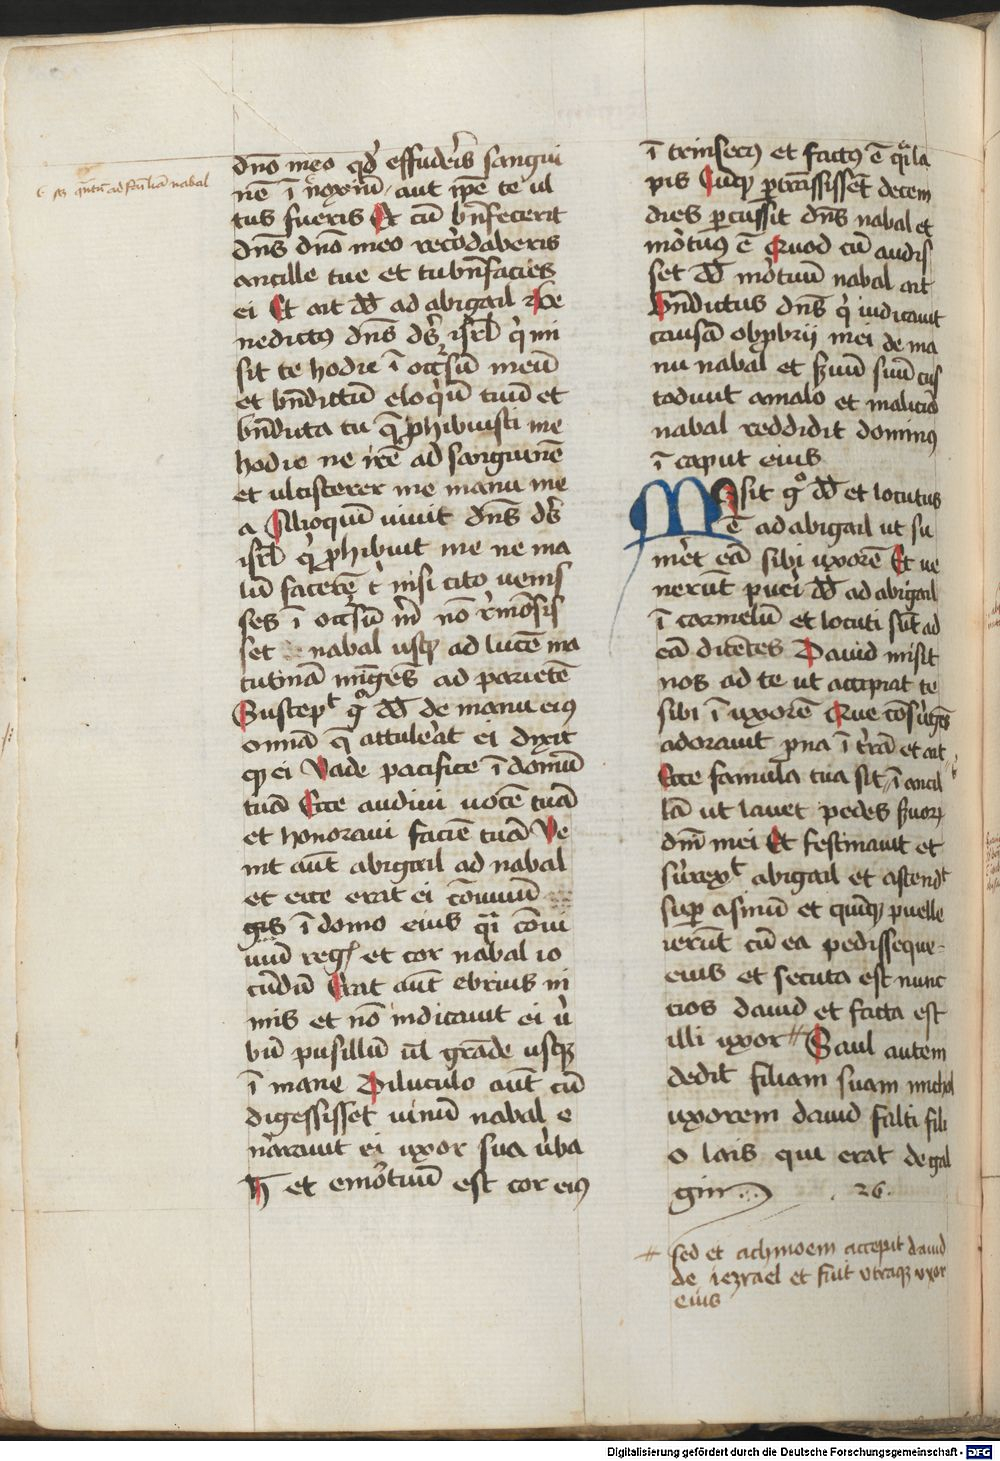 dn̄o meo qd̓ effuder̓is sangui
nē ī noxiū aut ip̄e te ul
tus fueris Et cū bn̄fecerit
dn̄s dn̄o meo recordaberis
ancille tue et tu bn̄facies
ei Et ait dd̄ ad abigail Be
nedictꝰ dn̄s ds̓ isrl̄ q̓ mi
sit te hodie ī occ̓sū meū
et bn̄dictū eloq̓ū tuū et
bn̄dicta tu q̄ ꝓhibuisti me
hodie ne irē ad sanguinē
et ulciscerer me manu me
a Alioquī vivit dn̄s ds̓
isrl̄ q̓ ꝓhibuit me ne ma
lū facerē t̓ nisi cito venis
ses ī occ̓sū m̓ nō r̓māsis
set nabal usqꝫ ad lucē ma
tutinā mīgēs ad parietē
Suscepᵗ gᵒ dd̄ de manu eiꝰ
omnia q̄ attul̓at ei dixit
qꝫ ei Vade pacifice ī domū
tuā Ecce audivi vocē tuā
et honoravi faciē tuā Ve
nit aūt abigail ad nabal
et ecce erat ei cōviviū
ī domo eius qͣi cōvi
viū reg̓ et cor nabal io
cūdū Erat aūt ebrius ni
mis et nō indicavit ei v̓
bū pusillū ul̄ grāde usqꝫ
ī mane Diluculo aūt cū
digessisset vinū nabal e
nar̓avit ei uxor sua v̓ba
h̄ et emor̓tuū est cor eiꝰ
ī trinsecꝰ et factꝰ ē qͣi la
pis Cūqꝫ ꝑtrāsissēt decem
dies ꝑcussit dn̄s nabal et
mor̓tuꝰ ē Quod cū audis
set dd̄ mor̓tuū nabal ait
Bn̄dictus dn̄s q̓ iudicavit
causā obꝓbrij mei de ma
nu nabal et s̓vū suū cus
todivit a malo et maliciā
nabal reddidit dominꝰ
ī caput eius
Misit gᵒ dd̄ et locutus
ē ad abigail ut su
mer̓et eā sibi uxorē Et ve
nerūt puer̓i dd̄ ad abigail
ī carmelū et locuti sūt ad
eā dicētes David misit
nos ad te ut accipiat te
sibi ī uxorē Que cōsurgēs
adoravit pͬna ī t̓rā et ait
Ecce famula tua sit ī ancil
lā ut lavet pedes s̓voꝝ
dn̄i mei Et festinavit et
surrexᵗ abigail et ascendᵗ
suꝑ asinū et quīqꝫ puelle
ierūt cū ea pedisseque
eius et secuta est nunc
cios david et facta est
illi uxor // Saul autem
dedit filiam suam michol
uxorem david falti fili
o lais qui erat de gal
gim . 26.
// sed et achinoem accepit david
de iezrael et fuit vtraqꝫ vxor
eius
Digitalisierung gefördert durch die Deutsche Forschungsgemeinschaft - DFG